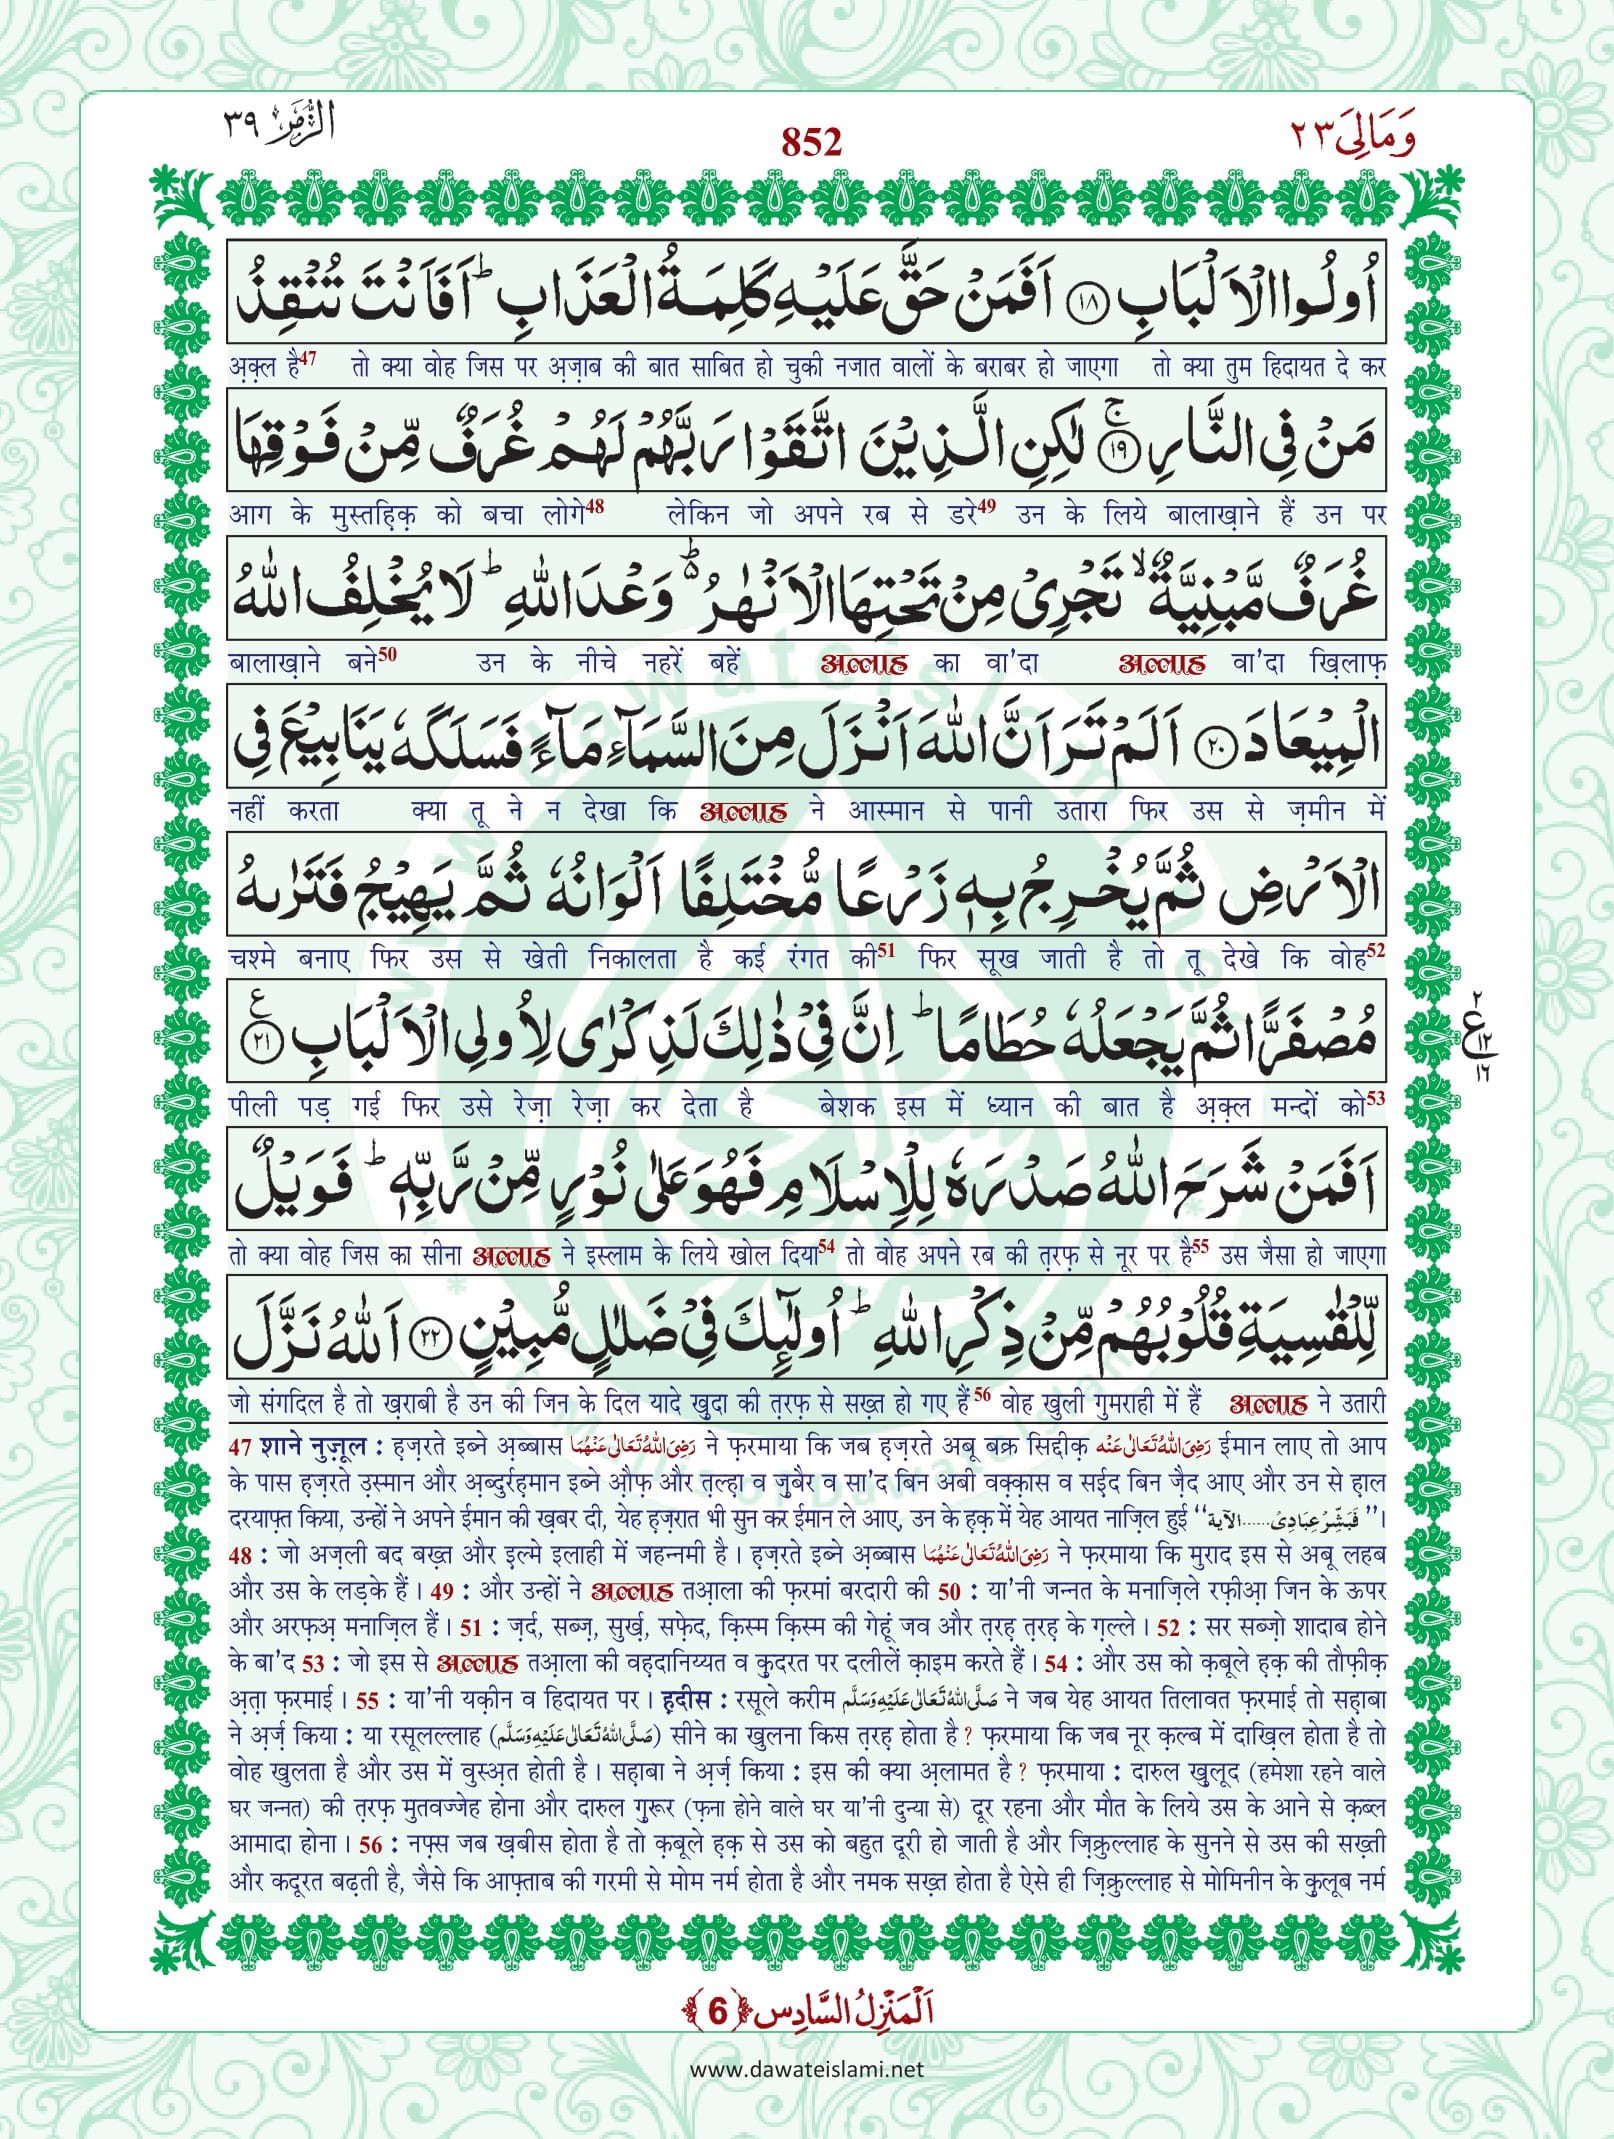 الزُّمَر ٣٩
852
وَمَالِیَ ٢٣
اُولُوا الْاَلْبَابِ ﴿١٨﴾ اَفَمَنْ حَقَّ عَلَیْهِ كَلِمَةُ الْعَذَابِ ؕ اَفَاَنْتَ تُنْقِذُ
अ़क़्ल है47 तो क्या वोह जिस पर अ़ज़ाब की बात साबित हो चुकी नजात वालों के बराबर हो जाएगा तो क्या तुम हिदायत दे कर
مَنْ فِی النَّارِ ﴿١٩﴾ۚ لٰكِنِ الَّذِیْنَ اتَّقَوْا رَبَّهُمْ لَهُمْ غُرَفٌ مِّنْ فَوْقِهَا
आग के मुस्तह़िक़ को बचा लोगे48 लेकिन जो अपने रब से डरे49 उन के लिये बालाख़ाने हैं उन पर
غُرَفٌ مَّبْنِیَّةٌ ۙ تَجْرِیْ مِنْ تَحْتِهَا الْاَنْهٰرُ ؕ۬ وَعْدَ اللّٰهِ ؕ لَا یُخْلِفُ اللّٰهُ
बालाख़ाने बने50 उन के नीचे नहरें बहें अल्लाह का वा'दा अल्लाह वा'दा ख़िलाफ़
الْمِیْعَادَ ﴿٢٠﴾ اَلَمْ تَرَ اَنَّ اللّٰهَ اَنْزَلَ مِنَ السَّمَآءِ مَآءً فَسَلَكَهٗ یَنَابِیْعَ فِی
नहीं करता क्या तू ने न देखा कि अल्लाह ने आस्मान से पानी उतारा फिर उस से ज़मीन में
الْاَرْضِ ثُمَّ یُخْرِجُ بِهٖ زَرْعًا مُّخْتَلِفًا اَلْوَانُهٗ ثُمَّ یَهِیْجُ فَتَرٰىهُ
चश्मे बनाए फिर उस से खेती निकालता है कई रंगत की51 फिर सूख जाती है तो तू देखे कि वोह52
مُصْفَرًّا ثُمَّ یَجْعَلُهٗ حُطَامًا ؕ اِنَّ فِیْ ذٰلِكَ لَذِكْرٰى لِاُولِی الْاَلْبَابِ ﴿٢١﴾ ع
पीली पड़ गई फिर उसे रेज़ा रेज़ा कर देता है बेशक इस में ध्यान की बात है अ़क़्ल मन्दों को53
٢
ع ١٢
١٦
اَفَمَنْ شَرَحَ اللّٰهُ صَدْرَهٗ لِلْاِسْلَامِ فَهُوَ عَلٰى نُوْرٍ مِّنْ رَّبِّهٖ ؕ فَوَیْلٌ
तो क्या वोह जिस का सीना अल्लाह ने इस्लाम के लिये खोल दिया54 तो वोह अपने रब की त़रफ़ से नूर पर है55 उस जैसा हो जाएगा
لِّلْقٰسِیَةِ قُلُوْبُهُمْ مِّنْ ذِكْرِ اللّٰهِ ؕ اُولٰٓىِٕكَ فِیْ ضَلٰلٍ مُّبِیْنٍ ﴿٢٢﴾ اَللّٰهُ نَزَّلَ
जो संगदिल है तो ख़राबी है उन की जिन के दिल यादे ख़ुदा की त़रफ़ से सख़्त हो गए हैं56 वोह खुली गुमराही में हैं अल्लाह ने उतारी
47 शाने नुज़ूल : ह़ज़रते इब्ने अ़ब्बास رَضِیَ اللّٰهُ تَعَالٰی عَنْهُمَا ने फ़रमाया कि जब ह़ज़रते अबू बक्र सिद्दीक़ رَضِیَ اللّٰهُ تَعَالٰی عَنْه ईमान लाए तो आप
के पास ह़ज़रते उ़स्मान और अ़ब्दुर्रह़मान इब्ने औ़फ़ और त़ल्ह़ा व ज़ुबैर व सा'द बिन अबी वक़्क़ास व सई़द बिन ज़ैद आए और उन से ह़ाल
दरयाफ़्त किया, उन्हों ने अपने ईमान की ख़बर दी, येह ह़ज़रात भी सुन कर ईमान ले आए, उन के ह़क़ में येह आयत नाज़िल हुई ‘‘فَبَشِّرْ عِبَادِیْ......الآیة’’।
48 : जो अज़ली बद बख़्त और इ़ल्मे इलाही में जहन्नमी है। ह़ज़रते इब्ने अ़ब्बास رَضِیَ اللّٰهُ تَعَالٰی عَنْهُمَا ने फ़रमाया कि मुराद इस से अबू लहब
और उस के लड़के हैं। 49 : और उन्हों ने अल्लाह तआ़ला की फ़रमां बरदारी की 50 : या'नी जन्नत के मनाज़िले रफ़ीआ़ जिन के ऊपर
और अरफ़अ़ मनाज़िल हैं। 51 : ज़र्द, सब्ज़, सुर्ख़, सफ़ेद, क़िस्म क़िस्म की गेहूं जव और त़रह़ त़रह़ के ग़ल्ले। 52 : सर सब्ज़ो शादाब होने
के बा'द 53 : जो इस से अल्लाह तआ़ला की वह़दानिय्यत व क़ुदरत पर दलीलें क़ाइम करते हैं। 54 : और उस को क़बूले ह़क़ की तौफ़ीक़
अ़त़ा फ़रमाई। 55 : या'नी यक़ीन व हिदायत पर। ह़दीस : रसूले करीम صَلَّی اللّٰهُ تَعَالٰی عَلَیْهِ وَسَلَّم ने जब येह आयत तिलावत फ़रमाई तो सह़ाबा
ने अ़र्ज़ किया : या रसूलल्लाह (صَلَّی اللّٰهُ تَعَالٰی عَلَیْهِ وَسَلَّم) सीने का खुलना किस त़रह़ होता है? फ़रमाया कि जब नूर क़ल्ब में दाख़िल होता है तो
वोह खुलता है और उस में वुस्अ़त होती है। सह़ाबा ने अ़र्ज़ किया : इस की क्या अ़लामत है? फ़रमाया : दारुल ख़ुलूद (हमेशा रहने वाले
घर जन्नत) की त़रफ़ मुतवज्जेह होना और दारुल ग़ुरूर (फ़ना होने वाले घर या'नी दुन्या से) दूर रहना और मौत के लिये उस के आने से क़ब्ल
आमादा होना। 56 : नफ़्स जब ख़बीस होता है तो क़बूले ह़क़ से उस को बहुत दूरी हो जाती है और ज़िक्रुल्लाह के सुनने से उस की सख़्ती
और कदूरत बढ़ती है, जैसे कि आफ़्ताब की गरमी से मोम नर्म होता है और नमक सख़्त होता है ऐसे ही ज़िक्रुल्लाह से मोमिनीन के क़ुलूब नर्म
اَلْمَنْزِلُ السَّادِس ﴿6﴾
www.dawateislami.net